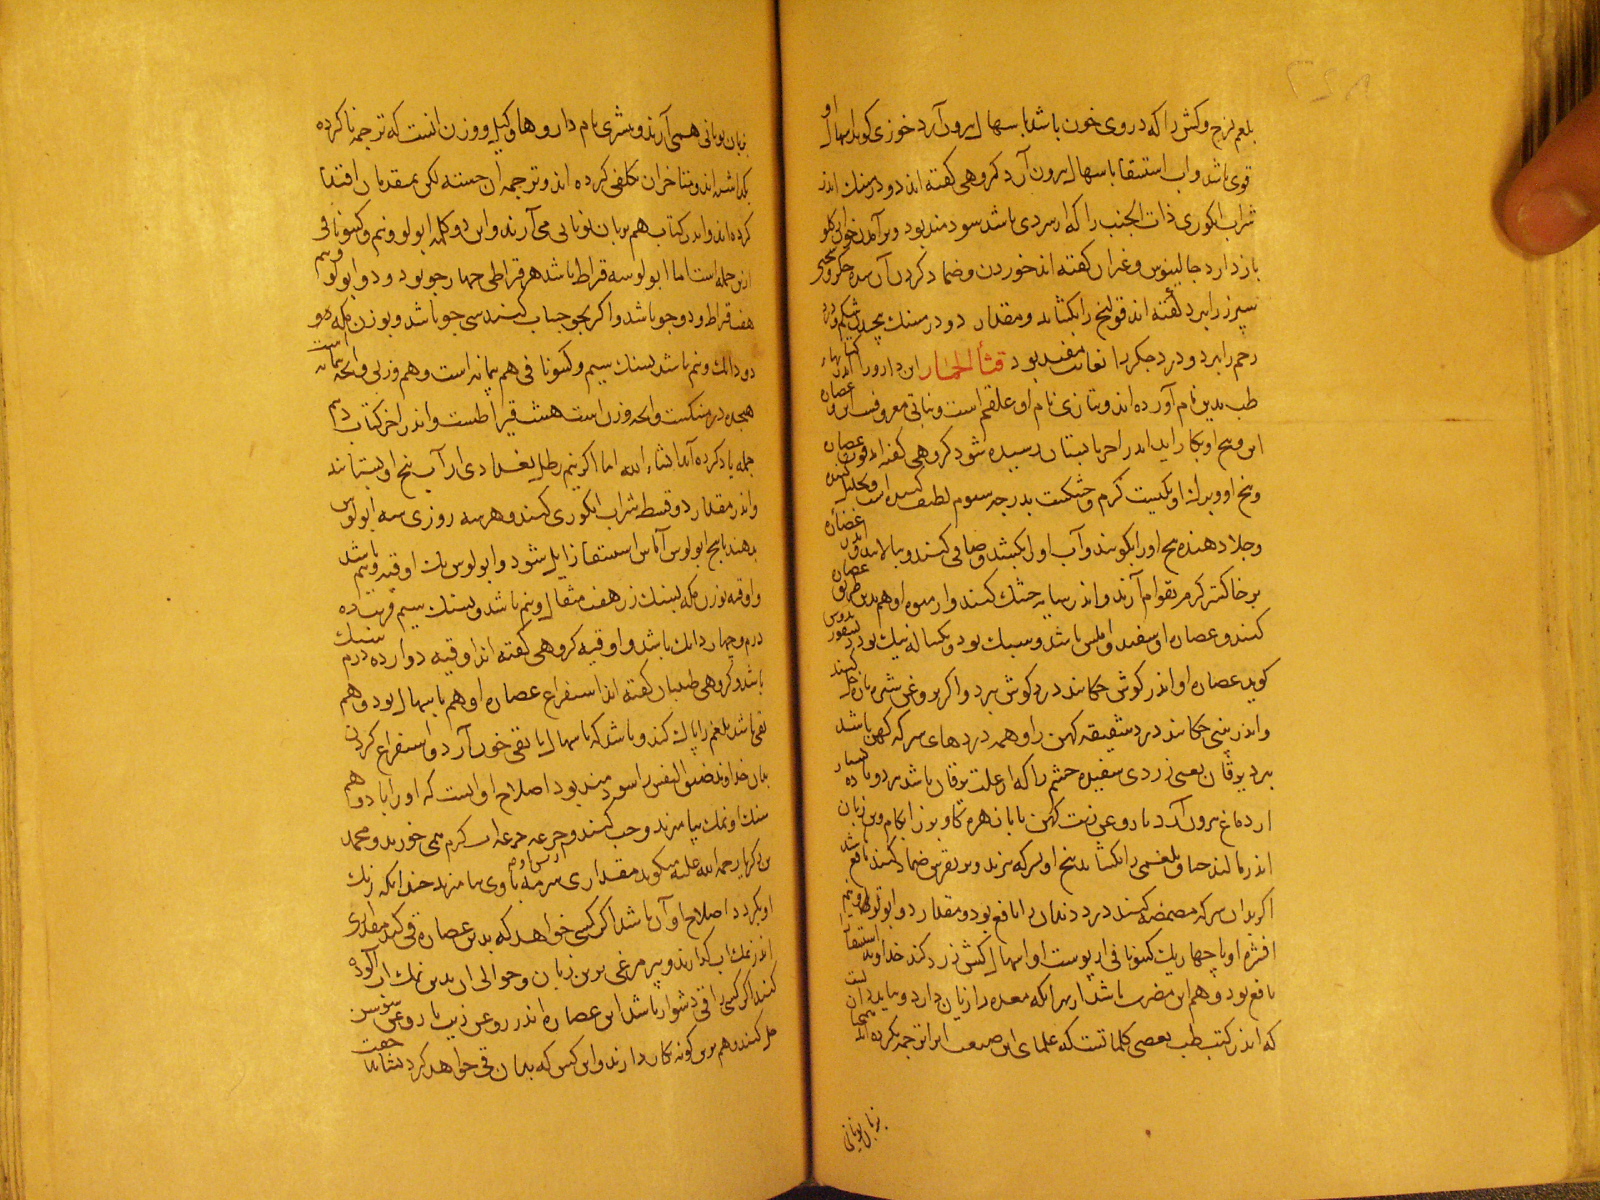 بلغم لزج وکش را که در وی خون باشد باسهال بیرون آرد خوزی کوید اسهال او
قوی باشد واب استسقا باسهال بیرون آرد کروهی کفته اند دو درمسنك اندر
شراب انکوری ذات الجنب را که از سردی باشد سودمند بود وبرآمدن خون از کلو
باز دارد جالینوس وغیر ان کفته اند خوردن وضماد کردن آن سده جکر
سپرز را ببرد کفته اند قولنج را بکشاید ومقدار دو درمسنك پیچیدن شکم ودرد
رحم را ببرد ودرد جکر را بغایت مفید بود قثأ الحمار این دارو را اندر کتابهاء
طب بدین نام آورده اند وبتازی نام او علقم است ونباتی معروفست
این وبیخ او بکار اید اندر اخر تابستان رسیده شود کروهی کفته اند قوت عصاره
وبیخ او وبرك او یکیست کرم وخشکست بدرجه سیوم لطیف کننده است ومحلل
وجلا دهنده بیخ او را بکوبند وآب او را بکشند وصافی کنند وبپالایند واندر
بر خاکستر کرم بقوام آرند واندر سایه خشك کنند واز میوه او هم بدین طریق
کنند وعصاره او سفید واملس باشد وسبك بود ویکساله نیك بود
کوید عصاره او اندر کوش چکانند درد کوش ببرد واکر بروغن شیره بازه حل کنند
واندر بینی چکانند درد شقیقه کهن را وهمه دردهای سر که کهن باشد
ببرد یرقان یعنی زردی سفیده چشم را که از علت یرقان باشد ببرد
از دماغ بیرون آرد با روغن زیت کهن یا با زهره کاو بوز را بکام وبن زبان
اندر مالند خناق بلغمی را بکشاید بیخ او بسرکه بپزند وبر نقرس ضماد کنند نافع باشد
اکر بدان سرکه مضمضه کنند درد دندان را نافع بود ومقدار دو ابولو ونیم
افشره او یا چهار یك کسونافی از پوست او اسهال کش زرد کند خداوند استسقا را
نافع بود وهم این مضرت باشد از بهر انکه معده را زیان دارد
که اندر کتب طب بعضی کلماتست که علمای این صنعت انرا ترجمه نکرده اند
بزبان یونانی
بزبان یونانی همی آرند وبیشتری نام داروها وکیل ووزن انست که ترجمه ناکرده
بکذاشته اند ومتاخران تکلفی کرده اند وترجمه ان جسته لکن بمتقدمان اقتدا
کرده اند واندر کتاب هم بزبان یونانی می آرند واین دو کلمه ابولو ونیم وکسونافی
ازین جمله است اما ابولو سه قراط باشد هر قراطی چهار جو بود ودو ابولو ونیم
هفت قراط ودو جو باشد واکر بجو حساب کنند سی جو باشد وبوزن مکه
دو دانك ونیم باشد بسنك سیم وکسونافی هم پیمانه است وهم وزن وانچه پیمانه است
هجده درمسنکست وانچه وزن است هشت قیراطست واندر اخر کتاب
جمله یاد کرده آید انشاء الله اما اکر نیم رطل بغدادی از آب بیخ او بستانند
واندر مقدار دو قسط شراب انکوری کنند وهر سه روزی سه ابولوس
بدهند تا پنج ابولوس آماس استسقا زایل شود وابولوس یك اوقیه ونیم باشد
واوقیه بوزن مکه بسنك زر هفت مثقال ونیم باشد وبسنك سیم
درم وچهار دانك باشد واوقیه کروهی کفته اند اوقیه دوازده درم
باشد وکروهی طبیبان کفته اند استفراغ عصاره او هم باسهال بود وهم
بقی باشد بلغم را پاك کند وباشد که باسهال یا بقی خون آرد واستفراغ کردن
بدان خداوند ضیق النفس را سودمند بود اصلاح او انست که او را با دو هم
سنك او نمك بیامیزند وحب کنند وجرعه جرعه آب کرم همی خورند ومحمد
بن زکریا رحمه الله علیه میکوید مقداری سرمه با وی بیامیزند چندانکه رنك
او بکردد اصلاح او آن باشد اکر کسی خواهد که بدین عصاره قی کند مقداری
اندر نمك اب کدازند وپر مرغی بدین زبان وحوالی ان بدین نمك اب آلوده
کنند اکر کسی را قی دشوار باشد این عصاره اندر روغن زیت یا روغن سوسن
حل کنند وهم برین کونه بکار دارند واین کس که بدان قی خواهد کرد نشاید